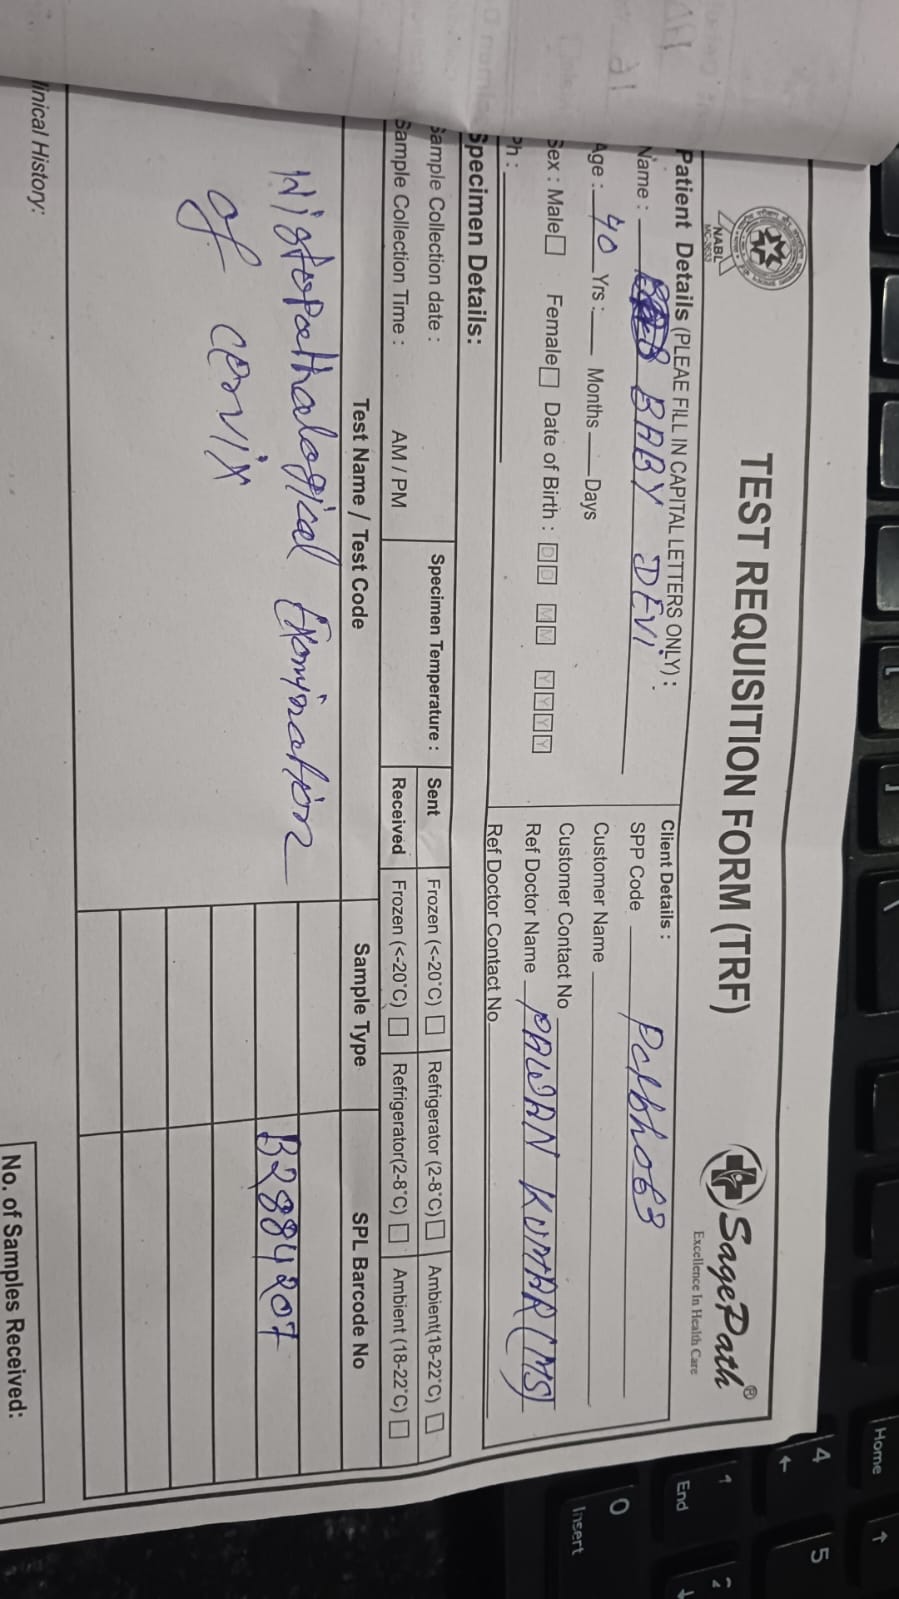 TEST REQUISITION FORM (TRF)
NABL
SagePath®
Excellence In Health Care
Patient Details (PLEAE FILL IN CAPITAL LETTERS ONLY) :
Name : BABY DEVI
Age : 40 Yrs : Months Days
Sex : Male Female Date of Birth : D D M M Y Y Y Y
Ph :
Client Details :
SPP Code
Customer Name
Customer Contact No
Ref Doctor Name PAWAN KUMAR (MS)
Ref Doctor Contact No
Specimen Details:
Sample Collection date : Specimen Temperature : Sent Frozen (<-20°C) Refrigerator (2-8°C) Ambient(18-22°C)
Sample Collection Time : AM / PM Received Frozen (<-20°C) Refrigerator(2-8°C) Ambient (18-22°C)
Test Name / Test Code Sample Type SPL Barcode No
Histopathological Examination
of cervix
B2884207
linical History:
No. of Samples Received:
Home
4
5
1
End
2
0
Insert